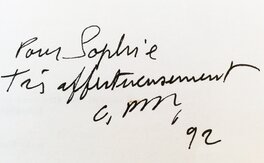 Pour Sophie
Très affectueusement
92